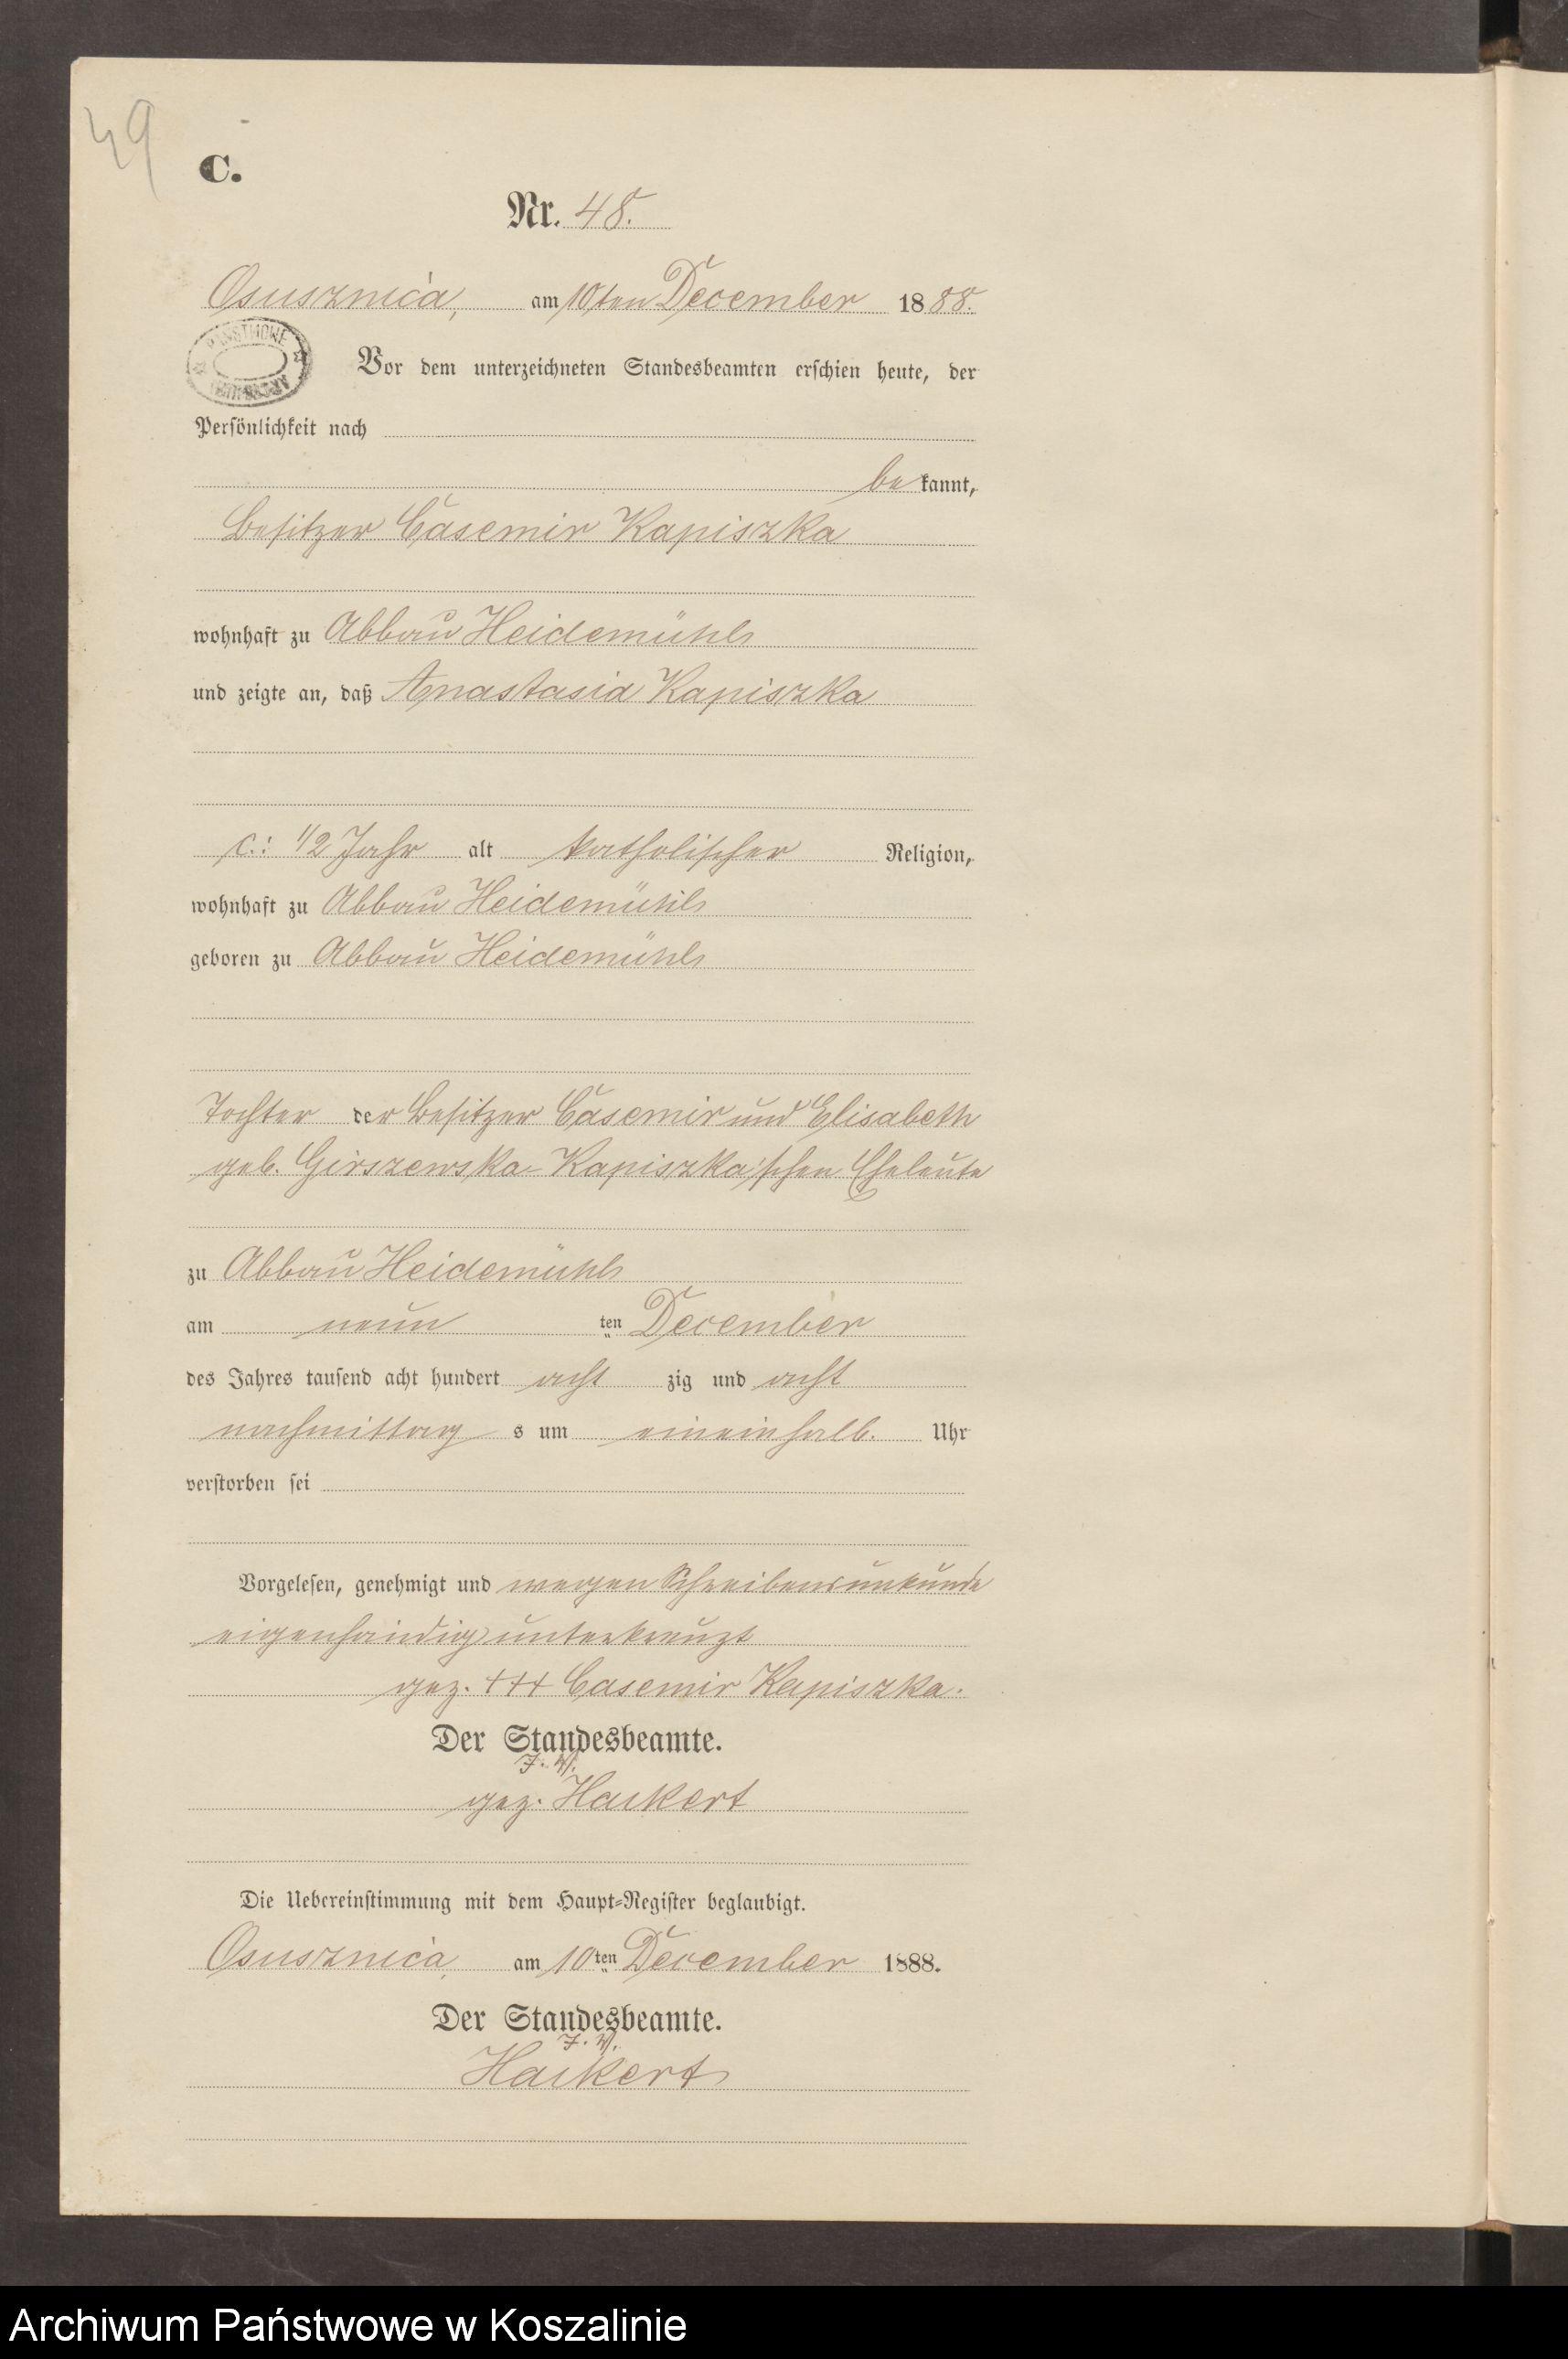 49
C.
Nr. 48.
Osusznica, am 10ten December 1888.
PAŃSTWOWE ARCHIWUM
Vor dem unterzeichneten Standesbeamten erschien heute, der
Persönlichkeit nach
bekannt,
Besitzer Casemir Kapiszka
wohnhaft zu Abbau Heidemühl
und zeigte an, daß Anastasia Kapiszka
c.: 1/2 Jahr alt katholischer Religion,
wohnhaft zu Abbau Heidemühl
geboren zu Abbau Heidemühl
Tochter der Besitzer Casemir und Elisabeth
geb. Girszewska-Kapiszka'schen Eheleute
zu Abbau Heidemühl
am neun ten December
des Jahres tausend acht hundert acht zig und acht
nachmittag s um eineinhalb. Uhr
verstorben sei
Vorgelesen, genehmigt und wegen Schreibensunkunde
eigenhändig unterkreuzt
gez. +++ Casemir Kapiszka.
Der Standesbeamte.
J. V.
gez. Hackert
Die Uebereinstimmung mit dem Haupt-Register beglaubigt.
Osusznica, am 10ten December 1888.
Der Standesbeamte.
J. V.
Hackert
Archiwum Państwowe w Koszalinie